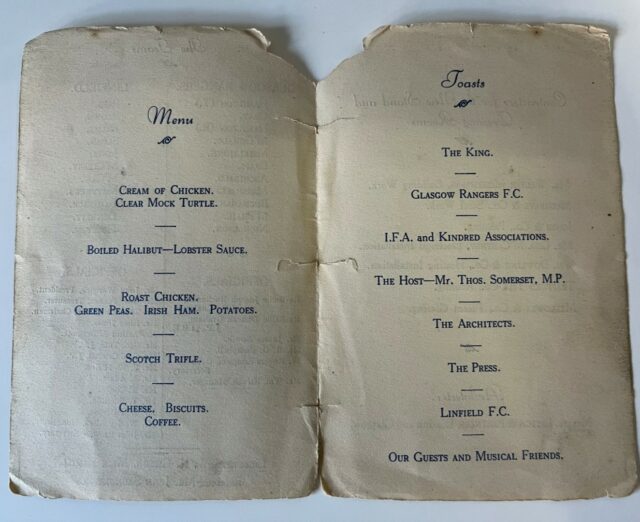 Menu
Cream of Chicken.
Clear Mock Turtle.
Boiled Halibut—Lobster Sauce.
Roast Chicken.
Green Peas. Irish Ham. Potatoes.
Scotch Trifle.
Cheese, Biscuits.
Coffee.
Toasts
The King.
Glasgow Rangers F.C.
I.F.A. and Kindred Associations.
The Host—Mr. Thos. Somerset, M.P.
The Architects.
The Press.
Linfield F.C.
Our Guests and Musical Friends.